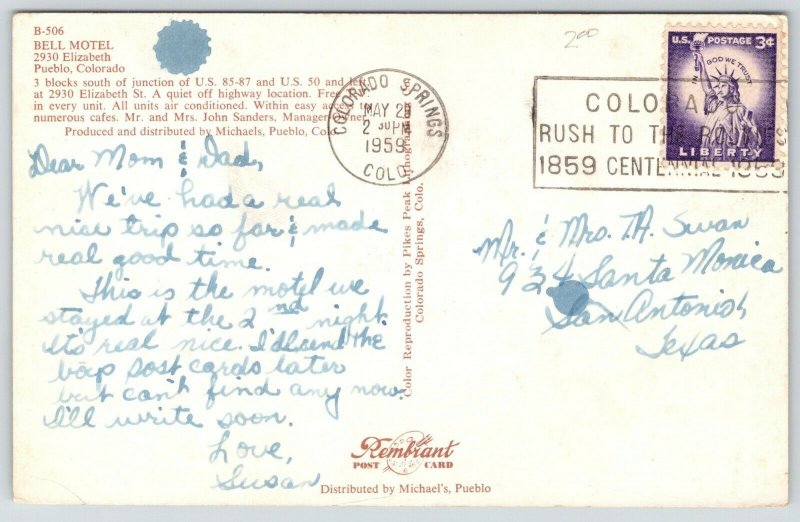 B-506
BELL MOTEL
2930 Elizabeth
Pueblo, Colorado
3 blocks south of junction of U.S. 85-87 and U.S. 50 and left
at 2930 Elizabeth St. A quiet off highway location. Free
in every unit. All units air conditioned. Within easy access
numerous cafes. Mr. and Mrs. John Sanders, Manager-Owner
Produced and distributed by Michaels, Pueblo, Colo.
Dear Mom & Dad,
We've had a real
nice trip so far & made
real good time.
This is the motel we
stayed at the 2nd night.
It's real nice. I'll send the
boys post cards later
but can't find any now.
I'll write soon.
Love,
Susan
Color Reproduction by Pikes Peak Lithographing
Colorado Springs, Colo.
Rembrant
POST CARD
Distributed by Michael's, Pueblo
COLORADO SPRINGS
MAY 29
2 30 PM
1959
COLO.
200
U.S. POSTAGE 3¢
IN GOD WE TRUST
LIBERTY
COLORADO
RUSH TO THE ROCKIES
1859 CENTENNIAL 1959
Mr. & Mrs. T.A. Swan
934 Santa Monica
San Antonio,
Texas